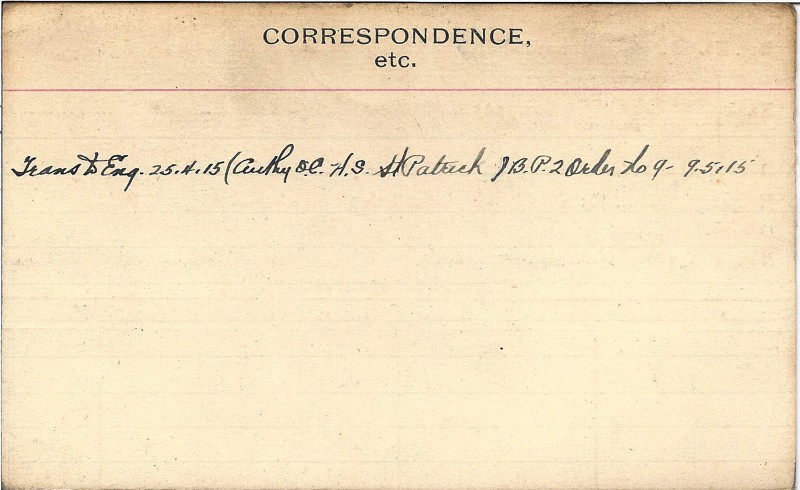 CORRESPONDENCE,
etc.
Trans to Eng. 25.4.15 (Authy O.C. H.S. St Patrick) B.P. 2 Order No 9- 9.5.15